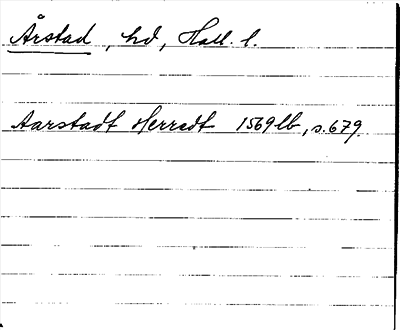 Årstad, hd, Hall. l.
Aarstadt Herredt 1569 lb, s. 679.